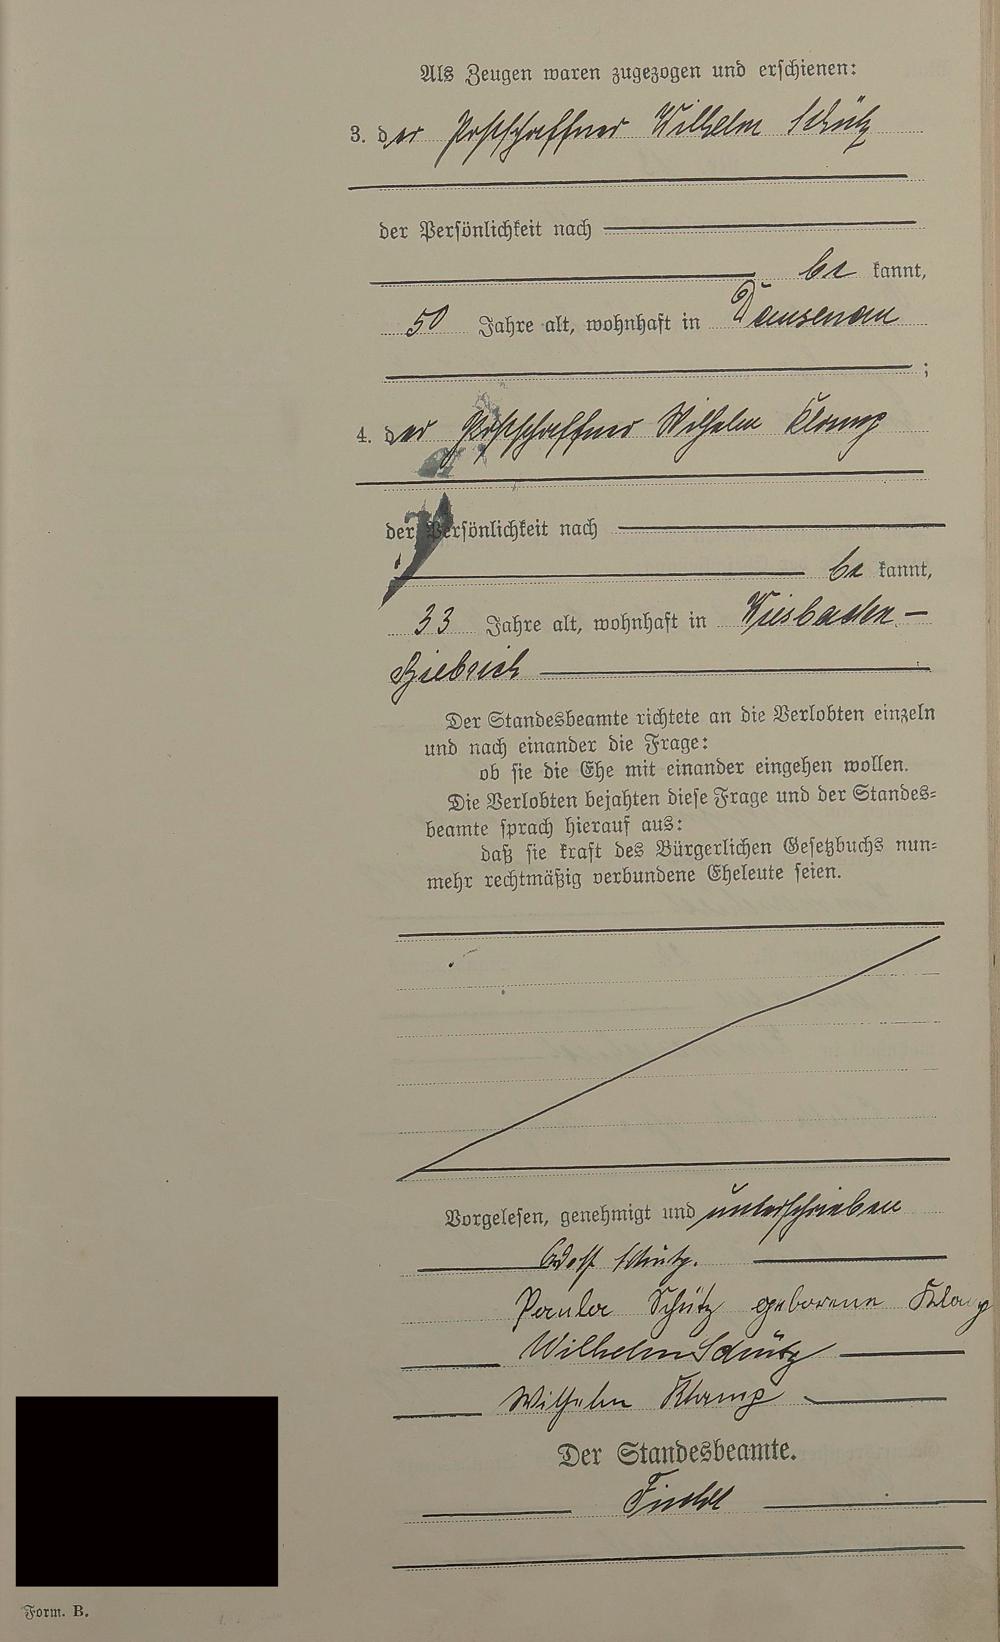 Als Zeugen waren zugezogen und erschienen:
3. der Postschaffner Wilhelm Schütz
der Persönlichkeit nach
be kannt,
50 Jahre alt, wohnhaft in Dausenau
;
4. der Postschaffner Wilhelm Klamp
der Persönlichkeit nach
be kannt,
33 Jahre alt, wohnhaft in Wiesbaden-
Biebrich
Der Standesbeamte richtete an die Verlobten einzeln
und nach einander die Frage:
ob sie die Ehe mit einander eingehen wollen.
Die Verlobten bejahten diese Frage und der Standes-
beamte sprach hierauf aus:
daß sie kraft des Bürgerlichen Gesetzbuchs nun-
mehr rechtmäßig verbundene Eheleute seien.
Vorgelesen, genehmigt und unterschrieben
Schütz.
Paula Schütz geborene Klamp
Wilhelm Schütz
Wilhelm Klamp
Der Standesbeamte.
Form. B.